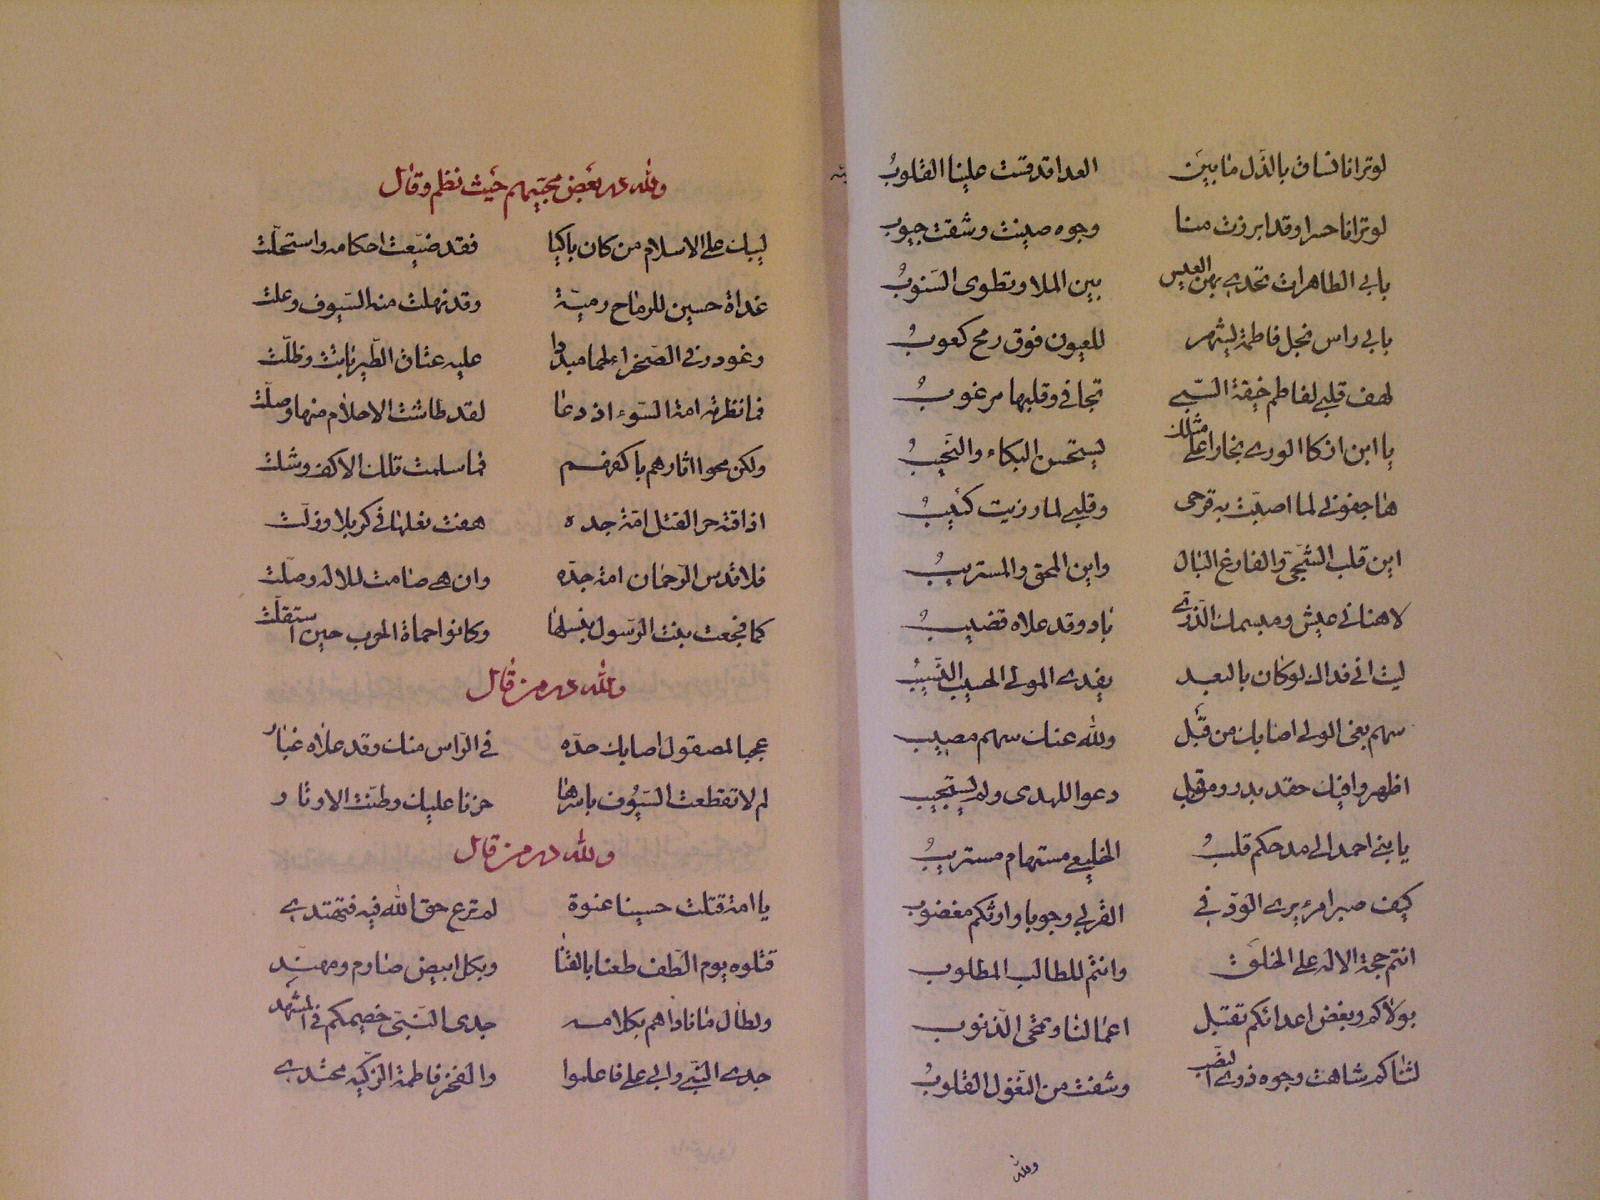 لو ترانا نساق بالذل ما بين العدا قد قست علينا القلوبُ
لو ترانا حسرا وقد ابرزت منا وجوه صينت وشقت جيوب
بابي الطاهرات تحدى بهن العيس بين الملا وتطوى السهوبُ
بابي راس نجل فاطمة يشهر للعيون فوق رمح كعوبُ
لهف قلبي لفاطم خيفة السبي تجافى وقلبها مرغوبُ
يا ابن ازكا الورى نجارا على مثلك يستحسن البكاء والنحيبُ
ها جفوني لما اصبت به قرحى وقلبي لما رزيت كئيبُ
اين قلب الشجي والفارغ البال واين المحق والمستريبُ
لا هنا في عيش ومبسمك الدري باد وقد علاه قضيبُ
ليت اني فداك لو كان بالعبد يفدى المولى الحبيب النسيبُ
سهم بغي الولى اصابك من قبل ولله عنك سهم مصيب
اظهروا فيك حقد بدر ومن قبل دعوا للهدى ولم يستجيب
يا بني احمد الى مدحكم قلبُ الخليعي مستهام مستريبُ
كيف صبر امرء يرى الود في القربى وجوبا وارثكم مغضوب
انتم حجة الاله على الخلق وانتم للطالب المطلوب
بولاكم وبغض اعدائكم تقبل اعمالنا وتمحى الذنوب
لثناكم شاهت وجوه ذوى النصب وشفت من النغول القلوبُ
ولله
ولله در بعض محبيهم حيث نظم وقال
ليبك على الاسلام من كان باكيا فقد ضيعت احكامه واستحلت
غداة حسين للرماح رمية وقد نهلت منه السيوف وعلت
وغودر في الصخراء لحما مبددا عليه عتاق الطير باتت وظلت
فما نظرته امة السوء اذ دعا لقد طاشت الاحلام منها وضلت
ولكن محوا اثارهم باكفهم فما سلمت تلك الاكف وشلت
اذاقته حر القتل امة جده هفت نعلها في كربلا وزلت
فلا قدس الرحمان امة جده وان هي صامت للاله وصلت
كما فجعت بنت الرسول بنسلها وكانوا حماة الحرب حين استقلت
ولله در من قال
عجبا لمصقول اصابك حده في الراس منك وقد علاه غبار
لم لا تقطعت السيوف باسرها حزنا عليك وطنت الاوتار
ولله در من قال
يا امة قتلت حسينا عنوة لم ترع حق الله فيه فتهتدي
قتلوه يوم الطف طعنا بالقنا وبكل ابيض صارم ومهند
ولطال ما ناداهم بكلامه جدى النبي خصيمكم في المشهد
جدى النبي وابي علي فاعلموا والفخر فاطمة الزكية محتدي